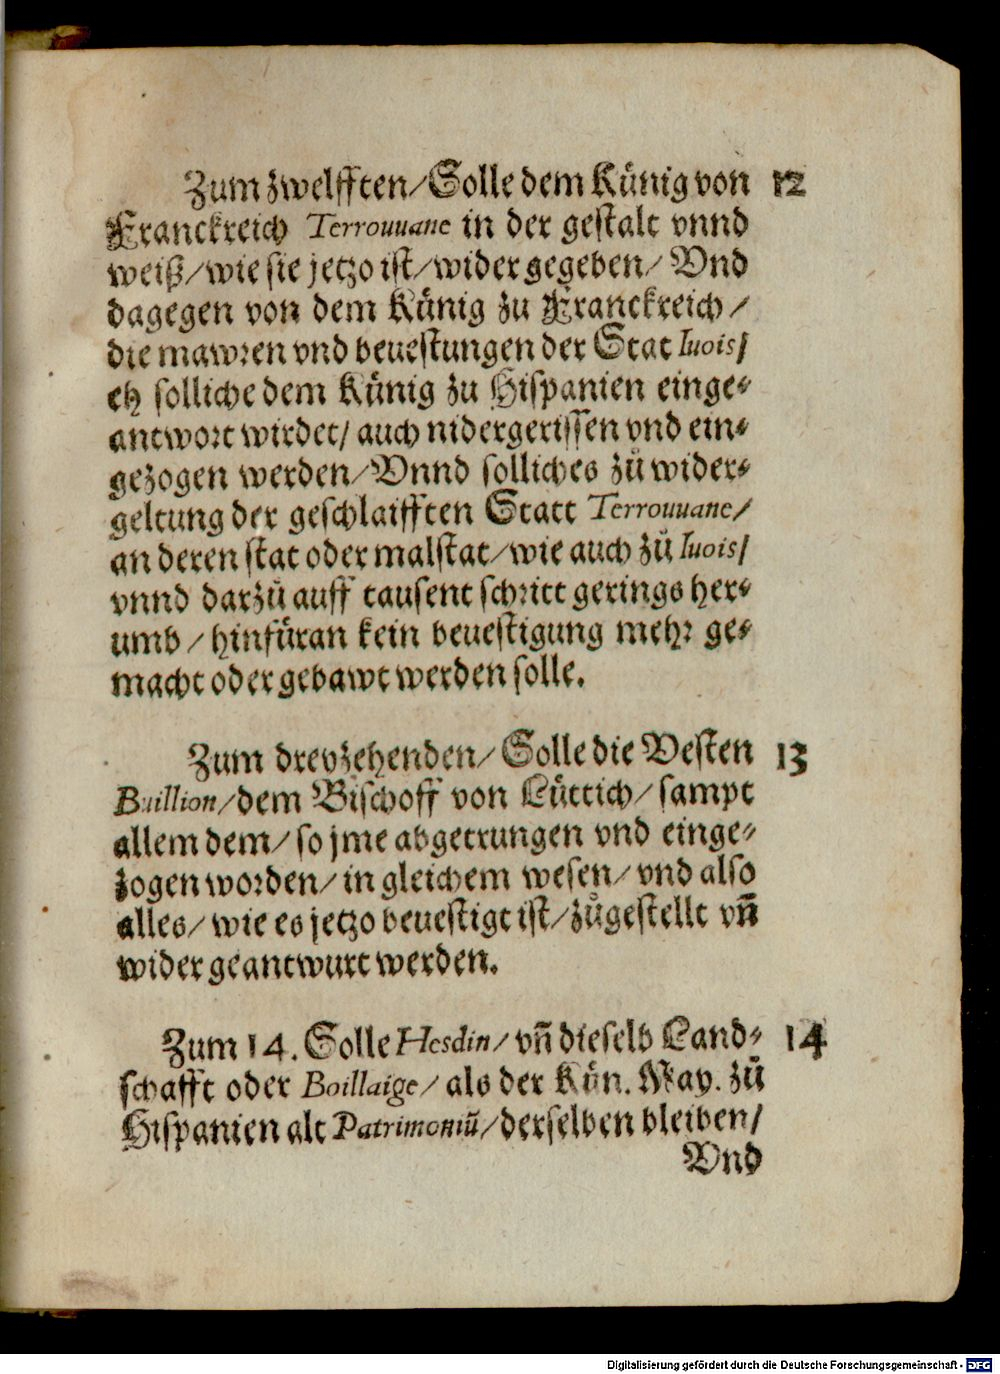 Zum zwelfften/ Solle dem Künig von 12
Franckreich Terrouuane in der gestalt vnnd
weiß/ wie sie jetzo ist/ wider gegeben/ Vnd
dagegen von dem Künig zu Franckreich/
die mawren vnd beuestungen der Stat Iuois/
eh solliche dem Künig zu Hispanien einge⸗
antwort wirdet/ auch nidergerissen vnd ein⸗
gezogen werden/ Vnnd solliches zů wider⸗
geltung der geschlaifften Statt Terrouuane/
an deren stat oder malstat/ wie auch zů Iuois/
vnnd darzů auff tausent schritt gerings her⸗
umb/ hinfüran kein beuestigung mehr ge⸗
macht oder gebawt werden solle.
Zum dreyzehenden/ Solle die Vesten 13
Buillion/ dem Bischoff von Lüttich/ sampt
allem dem/ so jme abgetrungen vnd einge⸗
zogen worden/ in gleichem wesen/ vnd also
alles/ wie es jetzo beuestigt ist/ zůgestellt vñ
wider geantwurt werden.
Zum 14. Solle Hesdin/ vñ dieselb Land⸗ 14
schafft oder Boillaige/ als der Kön. May. zů
Hispanien alt Patrimoniũ/ derselben bleiben/
Vnd
Digitalisierung gefördert durch die Deutsche Forschungsgemeinschaft - DFG